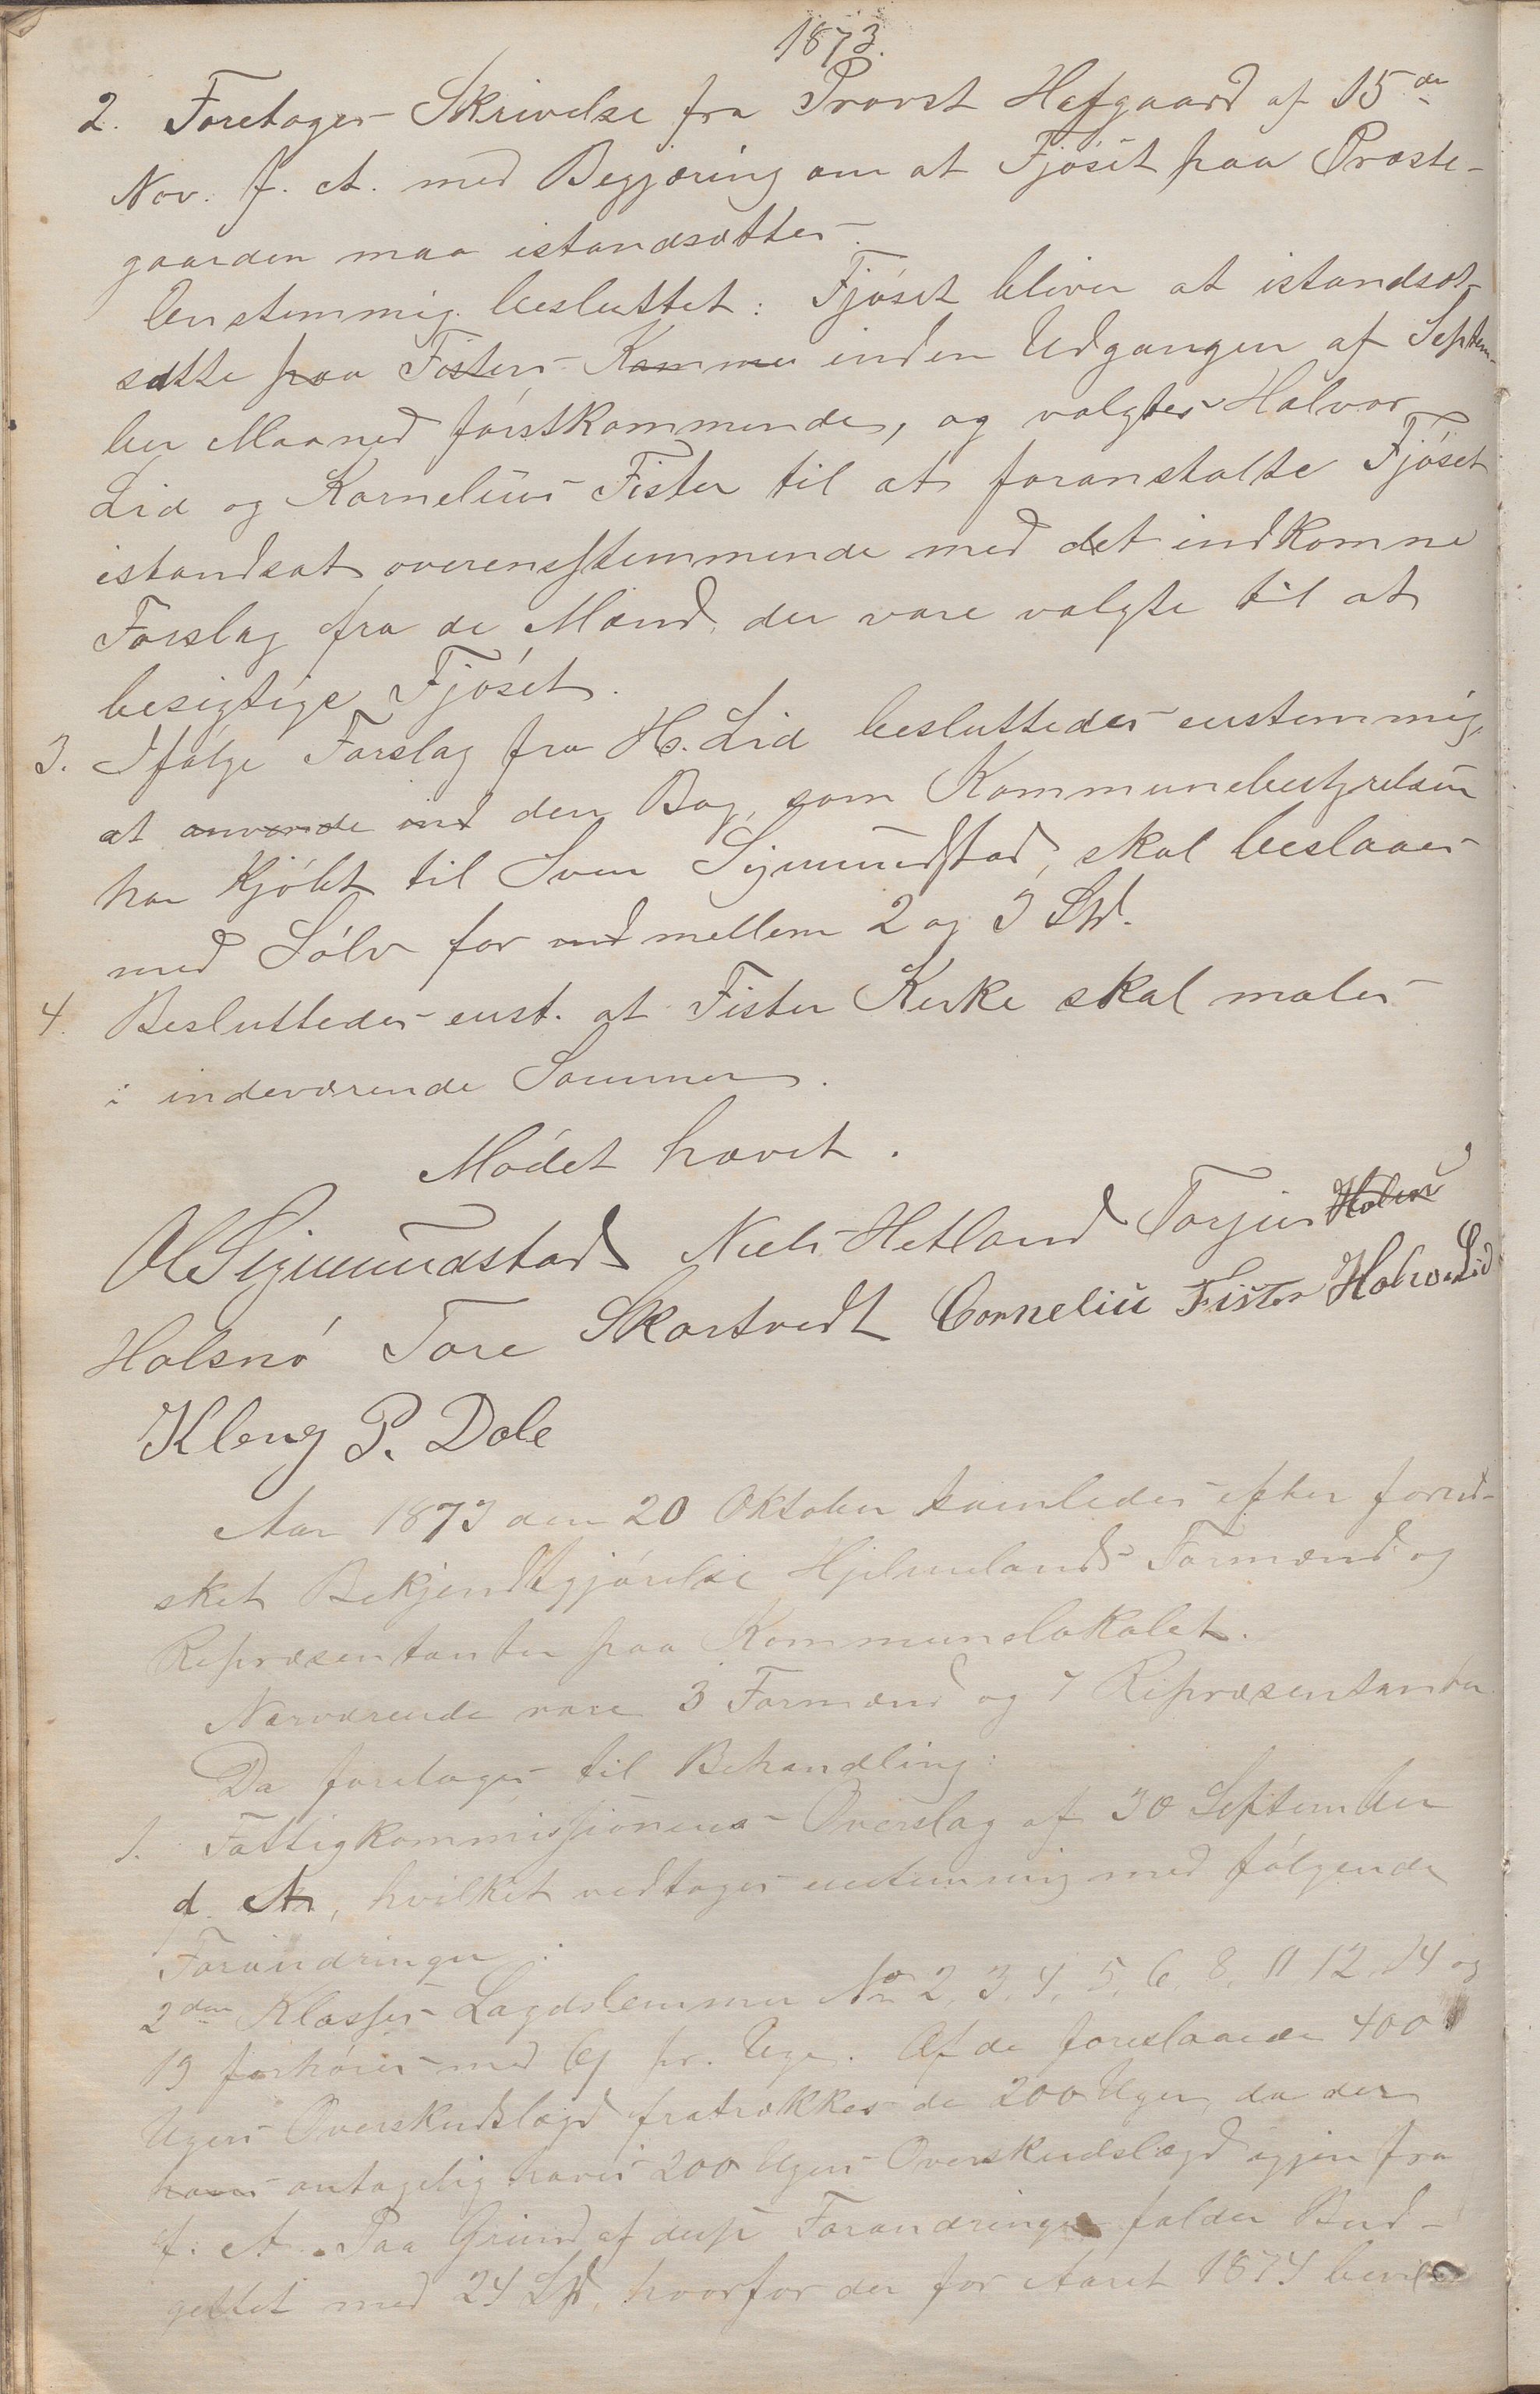 1873.
2. Foretages Skrivelse fra Provst Hafgaard af 15de
Nov. f. A. med Begjæring om at Fjøset paa Præste-
gaarden maa istandsættes.
Enstemmig besluttet: Fjøset bliver at istandsæt-
sætte paa Fisters Kommu inden Udgangen af Septem-
ber Maaned førstkommende, og valgtes Halvor
Lid og Kornelius Fister til at foranstalte Fjøset
istandsat overensstemmende med det indkomne
Forslag fra de Mænd, der vare valgte til at
besigtige Fjøset.
3. Ifølge Forslag fra H. Lid besluttedes enstemmig,
at anvende ind den Bog, som Kommunebestyrelsen
har kjøbt til Sven Sigmundstad, skal beslaaes
med Sølv for ind mellem 2 og 3 Spd.
4. Besluttedes enst. at Fister Kirke skal males
i indeværende Sommer.
Mødet hævet.
Ol Sigmundstad Niels Hetland Torjus Holsn
Halsnø Tore Skartvedt Corneliu Fister Halvor Lid
Kleng P. Dale
Aar 1873 den 20 Oktober samledes efter forud-
sket Bekjendtgjørelse Hjelmelands Formænd og
Repræsentanter paa Kommunelokalet.
Nærværende vare 3 Formænd og 7 Repræsentanter.
Da foretoges til Behandling:
1. Fattigkommissionens Overslag af 30 September
d. A., hvilket vedtoges enstemmig med følgende
Forandringer:
2den Klasses Lægdslemmer No 2, 3, 4, 5, 6, 8, 11, 12, 14 og
19 forhøies med 6 pr. Uge. Af de foreslaaede 400
Ugers Overskudslægd fratrækkes de 200 Uger, da der
haves antagelig haves 200 Ugers Overskudslægd igjen fra
f. A. Paa Grund af disse Forandringer falder Bud-
gettet med 24 Spd, hvorfor der for Aaret 1874